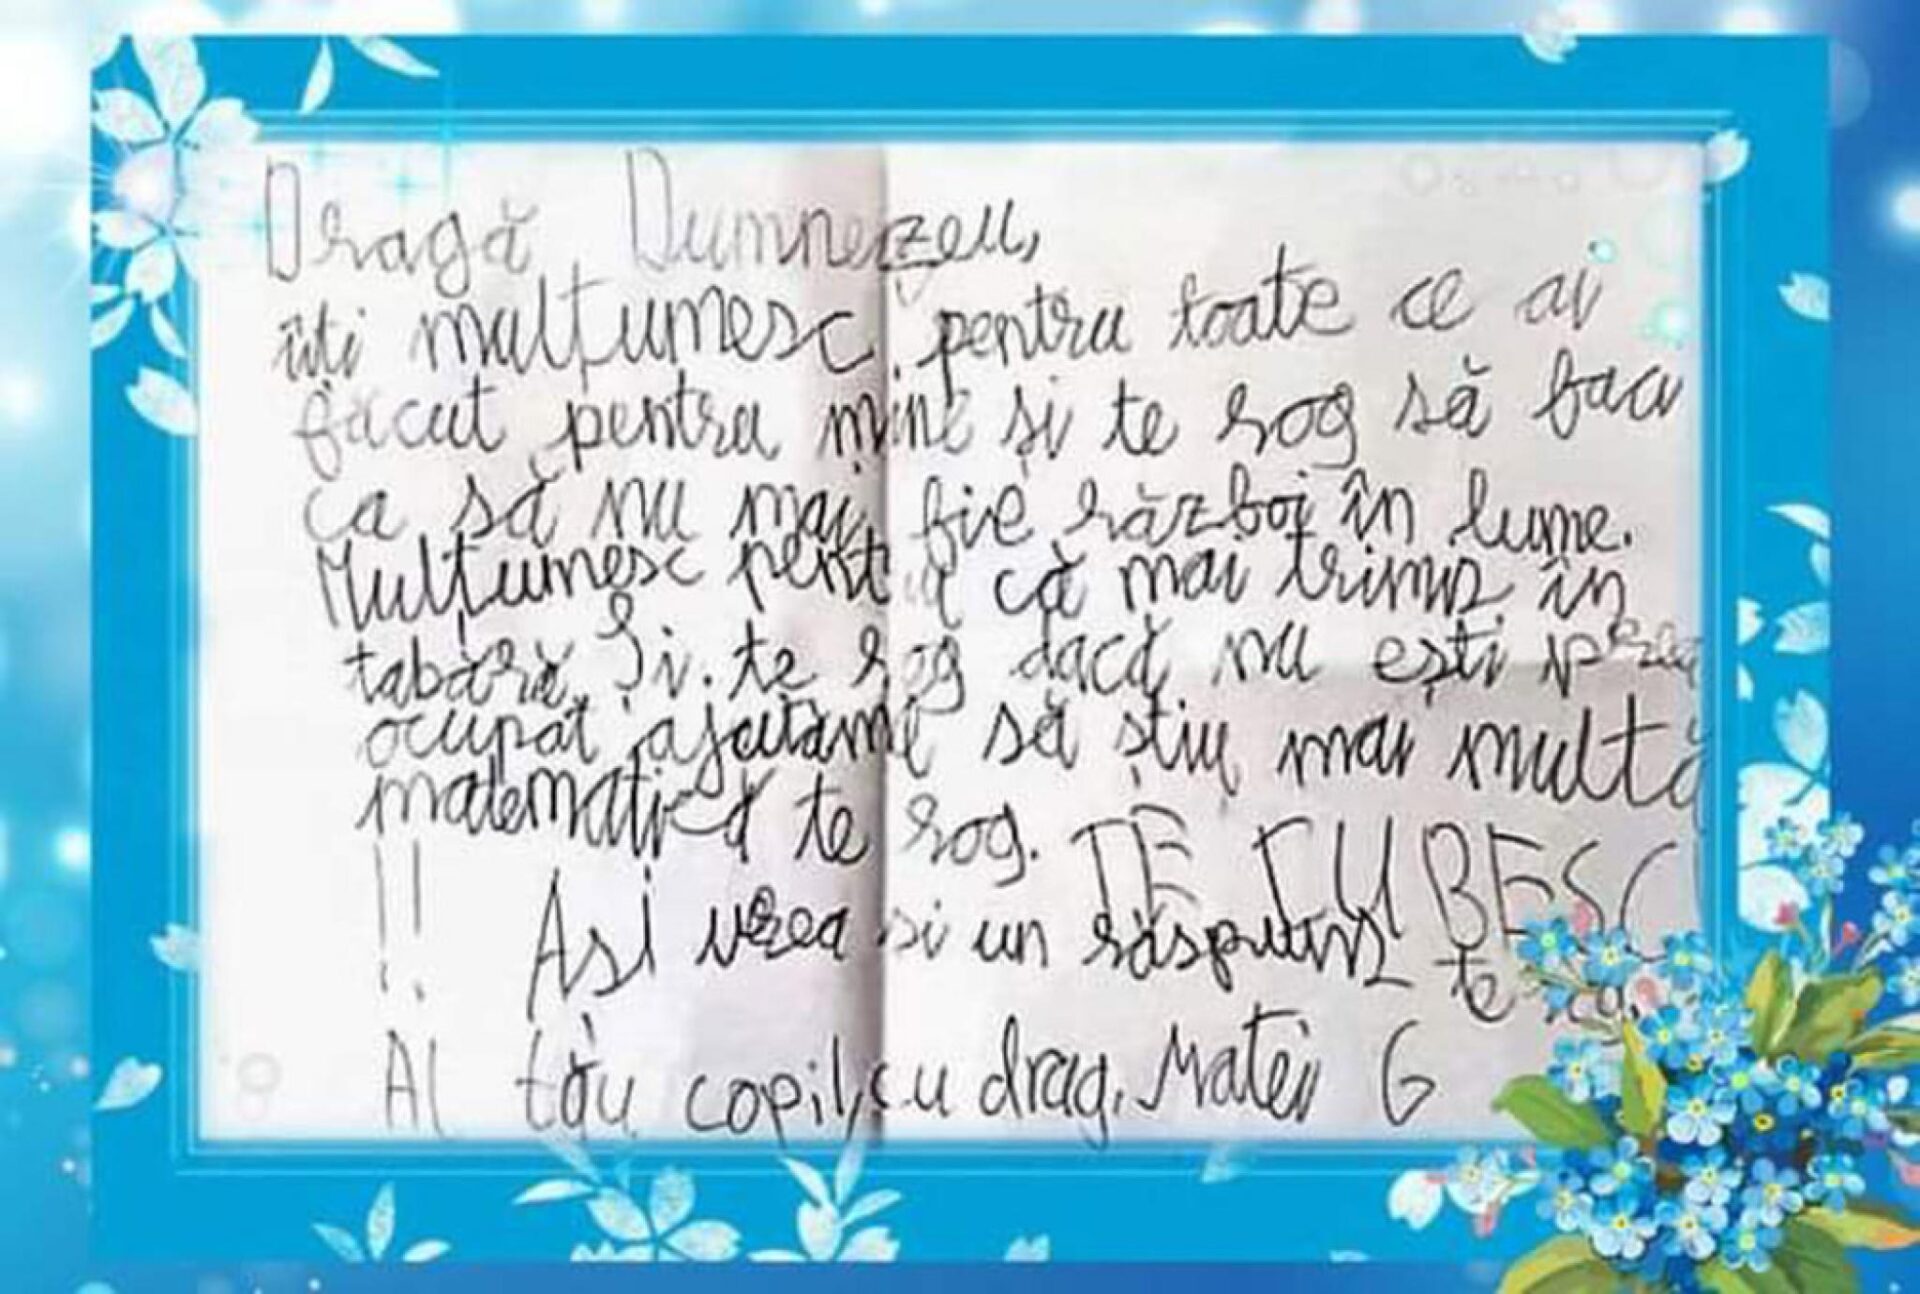 Dragă Dumnezeu,
îiti mulțumesc pentru toate ce ai
făcut pentru mine și te rog să faci
ca să nu mai fie război în lume.
Mulțumesc pentru că mai trimis în
tabără. Și te rog dacă nu ești prea
ocupat ajutămă să știu mai multă
matematică te rog. TE IUBESC
!! Asi vrea si un răspuns te
Al tău copil, cu drag, Matei G